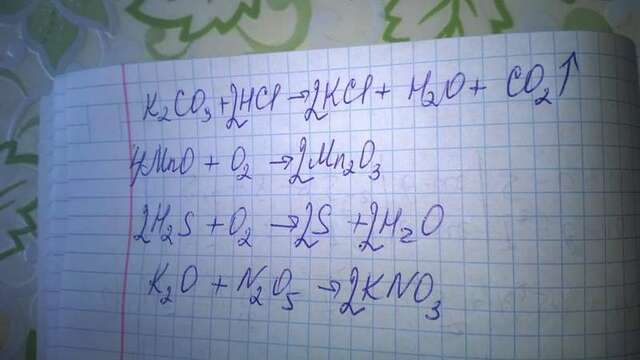 K₂CO₃ + 2HCl → 2KCl + H₂O + CO₂↑
4MnO + O₂ → 2Mn₂O₃
2H₂S + O₂ → 2S + 2H₂O
K₂O + N₂O₅ → 2KNO₃